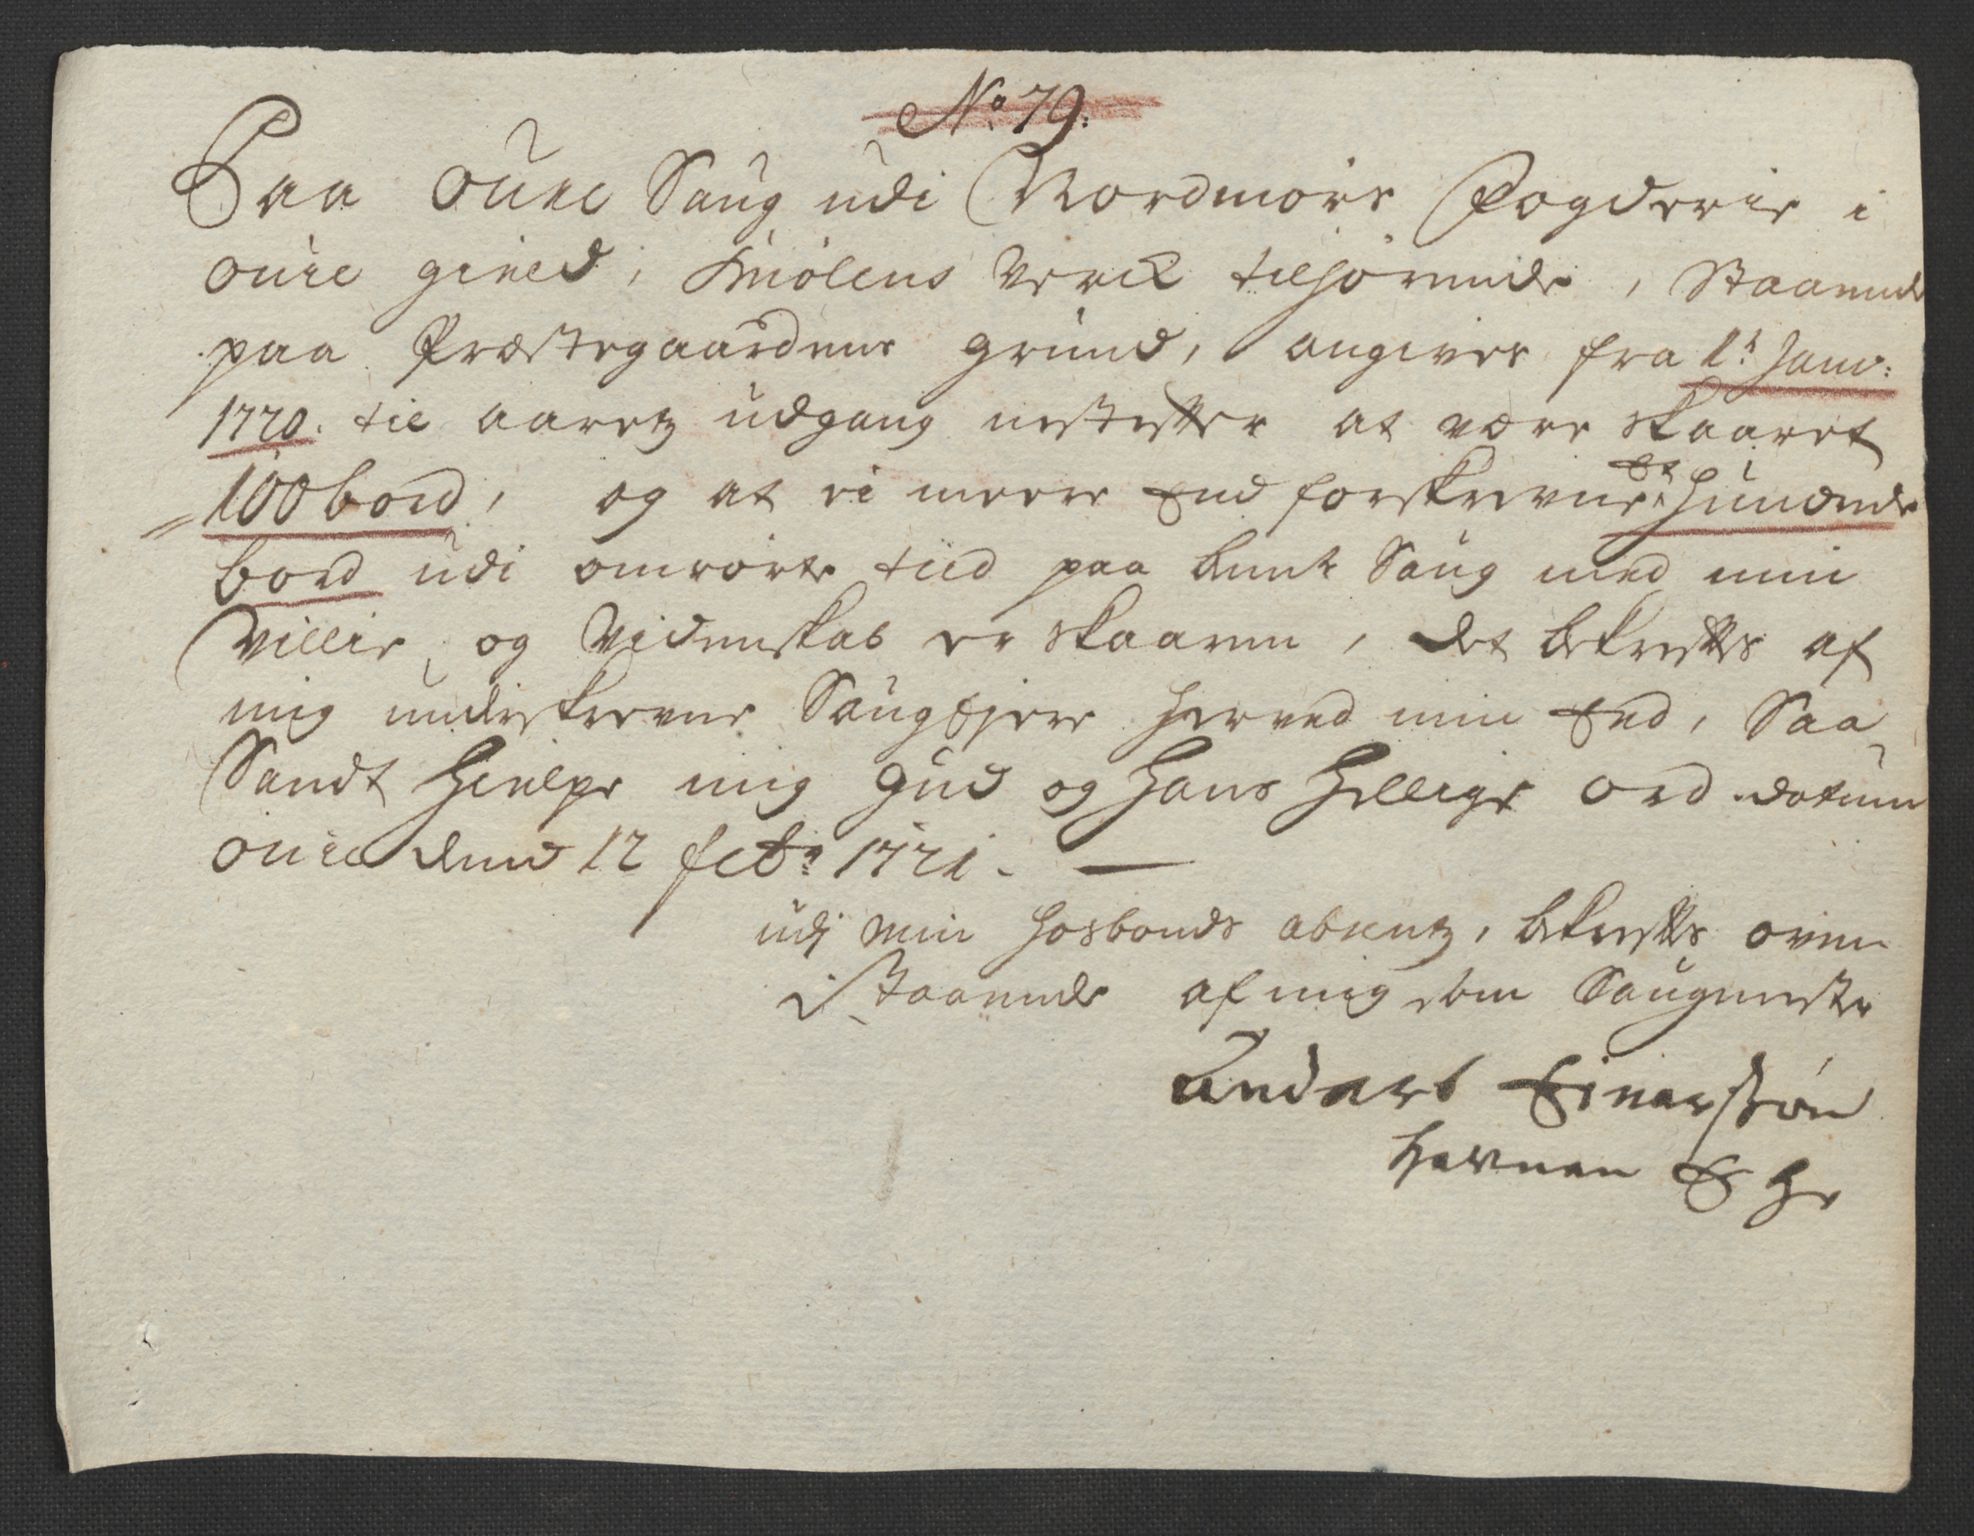 No 79.
Paa Oure Saug udi Nordmørs Fogderie i
Oure gield, Smølens Verck tilhørende, Staaende
paa Præstegaardens grund, angives fra 1t Janv:
1770. til aaretz udgang nestefter at være skaaret
100 bord, og at ei meere End forskrevne Et Hundrede
bord udi omrørte tiid paa bemte Saug med min
Villie og Videnskab er skaaren, det bekreftes af
mig underskrevne Saugeyere herved min Eed, Saa
Sandt Hielpe mig Gud og Hans Hellige Ord. datum
Oure dend 12 febr: 1771.
udj min Hosbonds absentz, bekreftes oven
staaende af mig som Saugmester
Anders Einersøn
Havnen E H